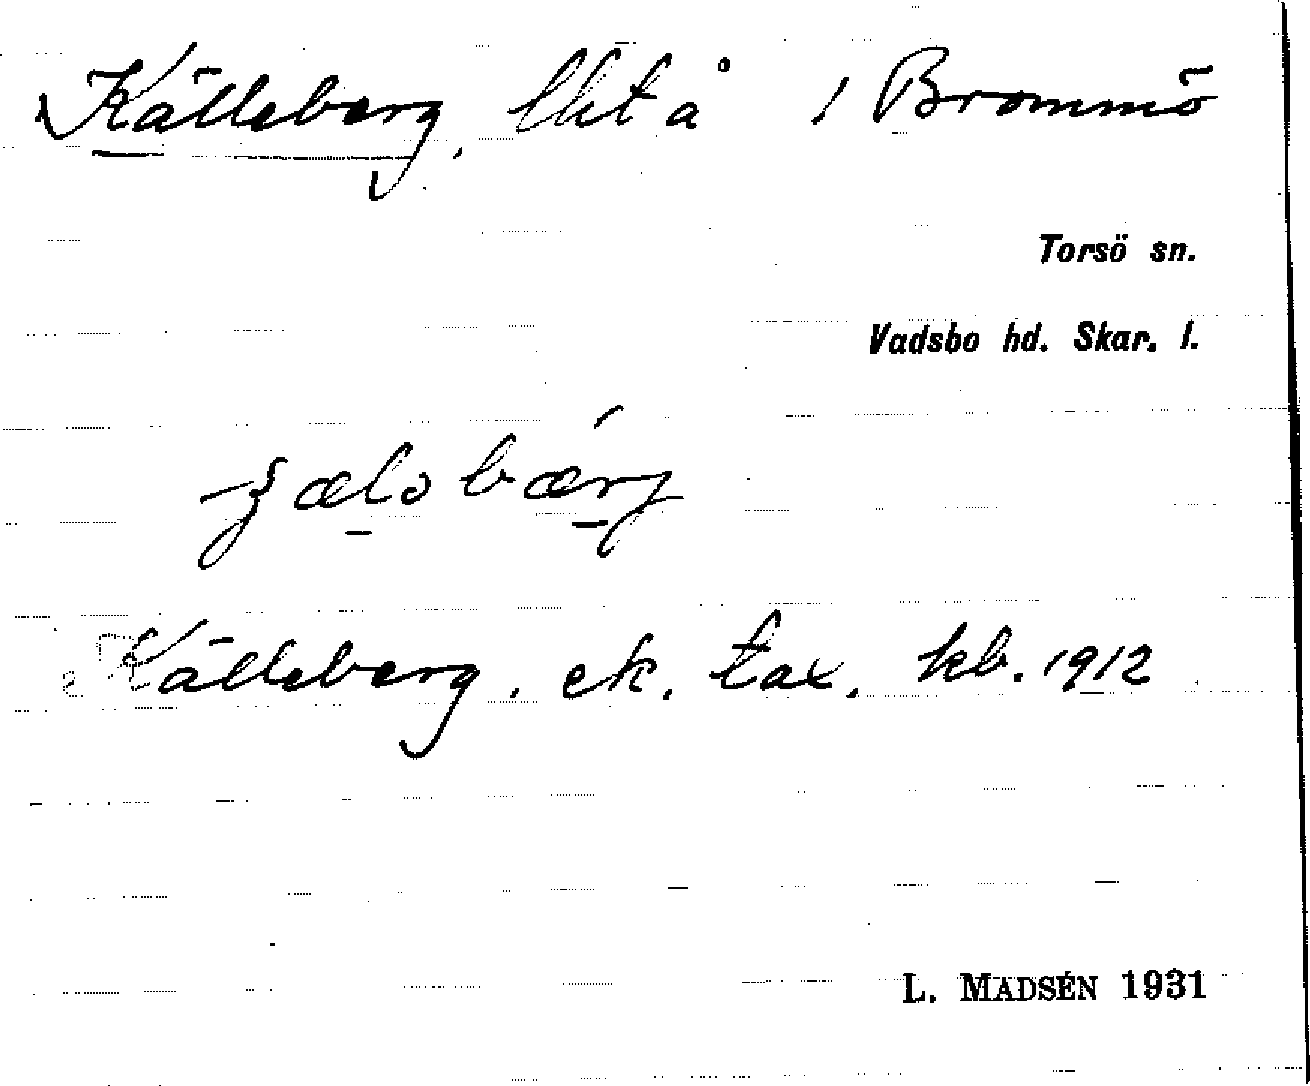 Källeberg, lht å / Brommö
Torsö sn.
Vadsbo hd. Skar. l.
Källeberg. ek. tax. kb. 1912
L. MADSÉN 1931